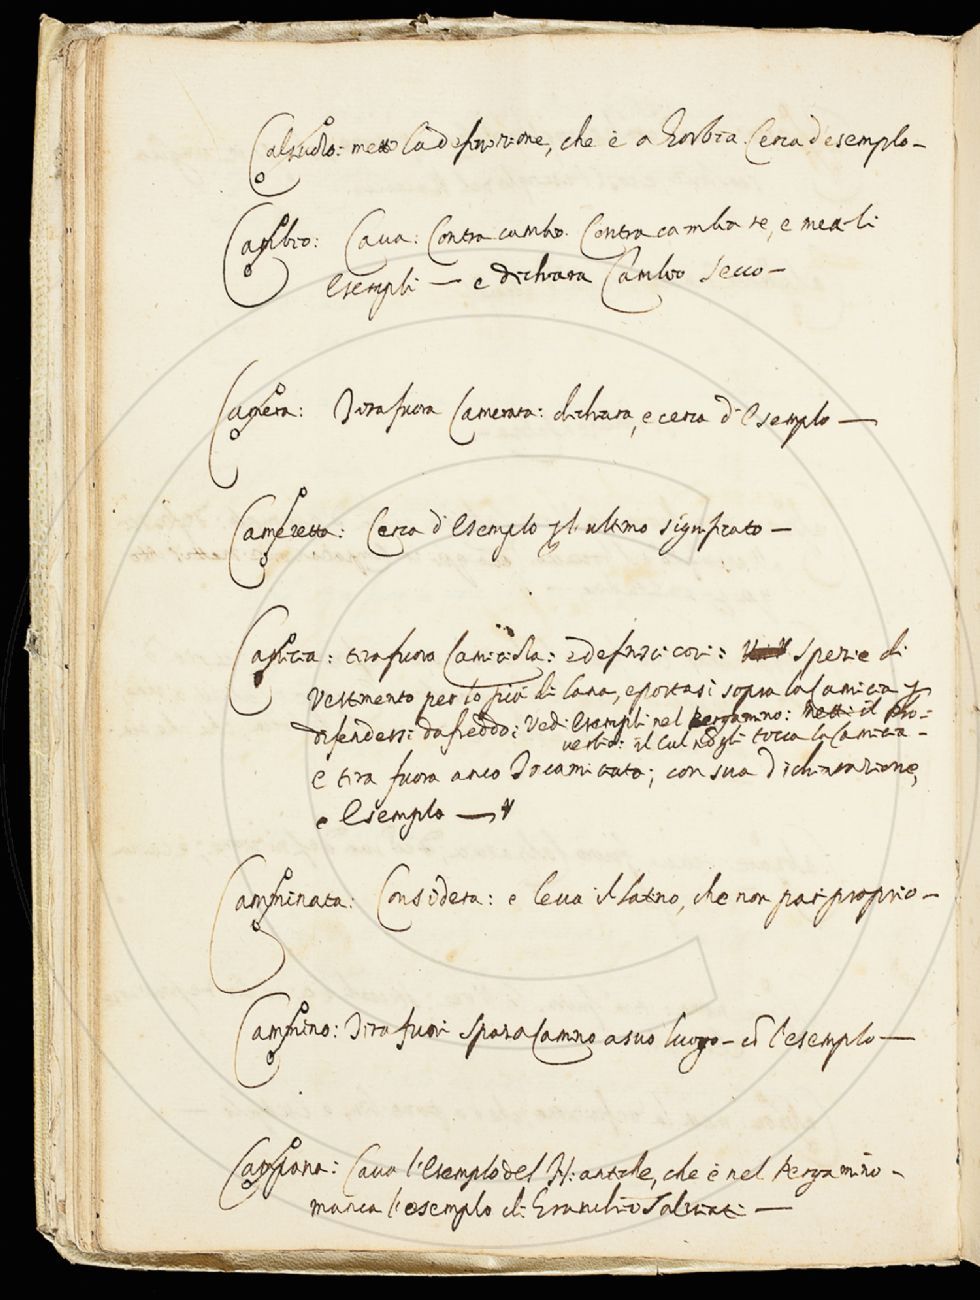 Calzuolo: metto la definizione, che è a Gorbia. Cerca d'esempio—
Cambio: Cava: Contra cambio. Contra cambiare, e metti li
Esempli — e dichiara Cambio secco—
Camera: Tira fuora Camerata: dichiara, e cerca d'Esemplo —
Cameretta: Cerca d'Esemplo p l'ultimo significato—
Camicia: tira fuora Camiciola: e definisci così: Spezie di
Vestimento per lo più di lana, e portasi sopra la Camicia p
difendersi da freddo: Vedi Esempli nel pergamino: metti il pro-
verbio: il cul nō gli tocca la Camicia-
E tira fuora anco Incamiciata; con sua Dichiarazione,
e Esemplo —
Camminata: Considera: e leva il latino, che non par proprio—
Cammino: Tira fuori Spazacammino a suo luogo— cō l'esemplo—
Campana: Cava l'Esemplo del N: antche, che è nel Pergamino-
manca l'esemplo di Franchio Salviati—